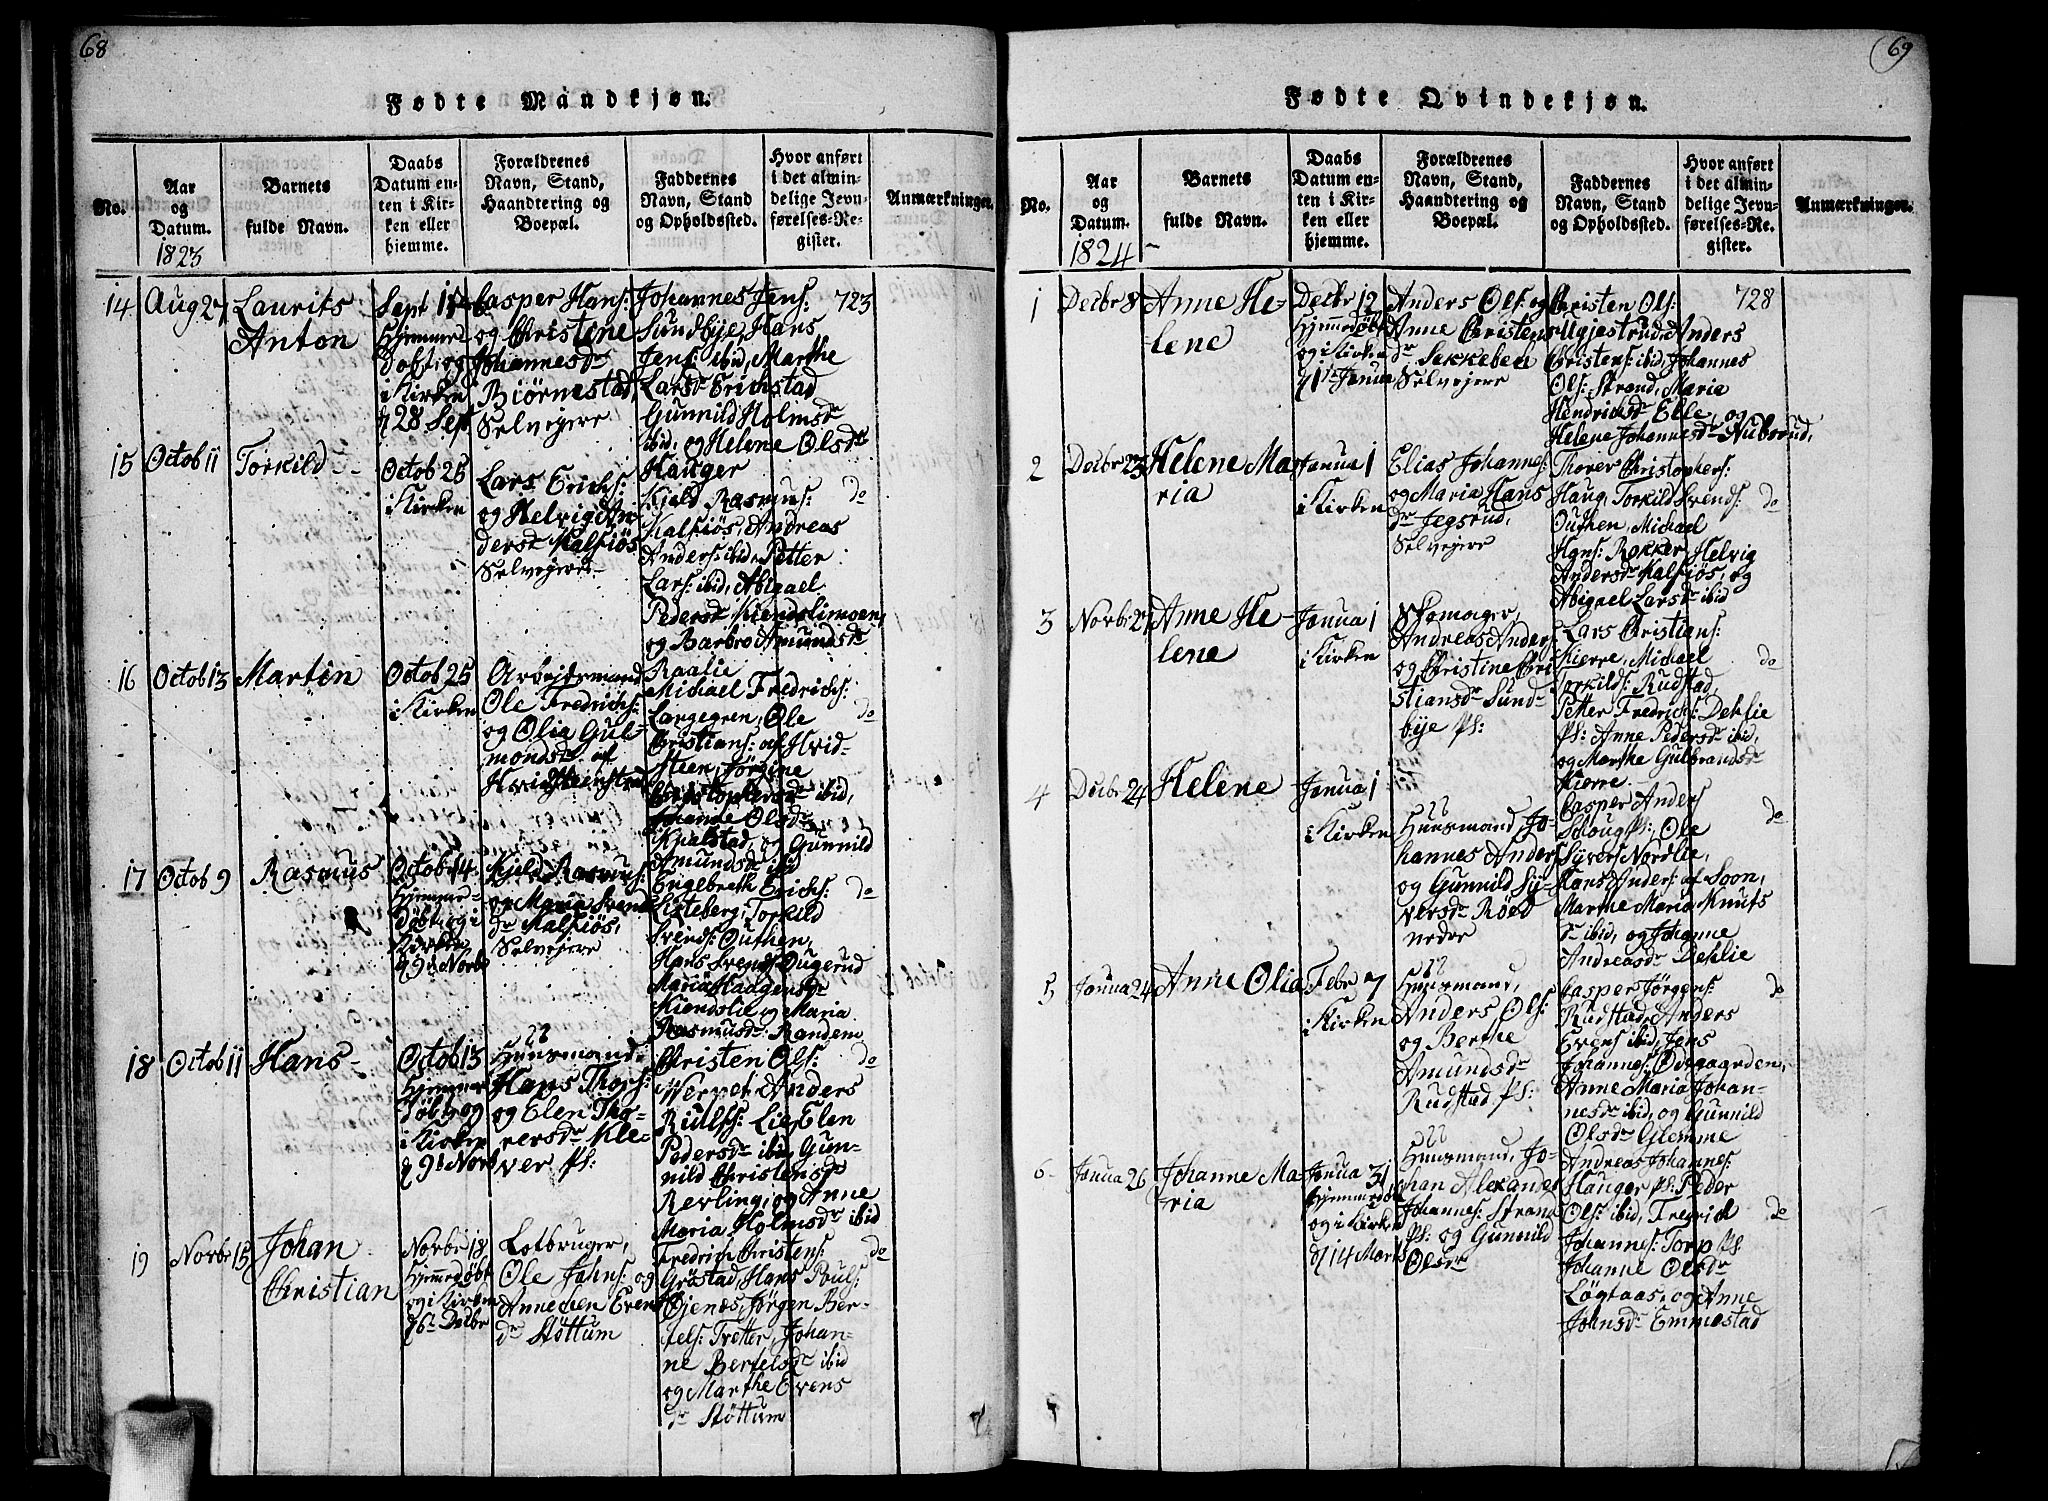 68
Fødte Mandkjøn.
No.
Aar
og
Datum.
1823
Barnets
fulde Navn.
Daabs
Datum en-
ten i Kir-
ken eller
hjemme.
Forældrenes
Navn, Stand,
Haandtering og
Boepæl.
Faddernes
Navn, Stand
og Opholdssted.
Hvor anført
i det almin-
delige Jevn-
førelses-Re-
gister.
Anmærkninger.
14
Aug 27
Laurits
Anton
Sept
Hjemme
Døbt, og
i Kirken
28 Sept
Casper Hans:
og Christine
Johannesdr
Biørnestad,
Selvejere
Johannes Jens:
Sundbye, Hans
Jens: ibid, Marthe
Larsdr Erichstad
Gunnild Holmsdr
ibid, og Helene Olsdr
Hauger
723
15
Octob 11
Torkild
Octob 25
i Kirken
Lars Erichs:
og Helvig An-
dersdr Kalfiøs
Selvejere
Kjeld Rasmus:
Kalfiøs, Andreas
Anders: ibid, Petter
Lars: ibid, Abigael
Pedersdr Kiendslimoen,
og Barbro Amundsdr
Raalie
do
16
Octob 13
Martin
Octob 25
i Kirken
Arbejdsmand
Ole Fredrichs:
og Olia Gul-
mondsdr af
Michael Fredrichs:
Langegren, Ole
Christians: af Hvid-
steen, Jørgine
Christophersdr ibid,
Johanne Olsdr
Kjalstad, og Gunnild
Amundsdr ibid
do
17
Octob 9
Rasmus
Octob 14
Hjemme-
Døbt, og i
Kirken
9d Novb
Kjeld Rasmus:
og Maria Svens
dr Kalfiøs,
Selvejere
Engebreth Erichs:
Listeberg, Torkild
Svends: Outhen,
Hans Svends Dugerud
Maria Haagensdr
Kiendslie og Maria
Rasmusdr Randem
do
18
Octob 11
Hans
Octob 13
Hjemme
Døbt, og
i Kirken
9d Novb
Huusmand
Hans Thors:
og Elen Tho-
rersdr Kle-
ver Pl:
Christen Ols:
Werpet, Anders
Rulfs: Lie, Elen
Pedersdr ibid, Gun-
nild Christensdr
Revling, og Anne
Maria Holmsdr ibid
do
19
Novbr 15
Johan
Christian
Novbr 18
Hjemedøbt
og i Kirken
6te Decbr
Lotbruger,
Ole Johns: og
Anne Evens
dr Støttum
Fredrich Christens:
Grøstad, Hans Pouls:
Gjenæs, Jørgen Ber-
tels: Tretter, Johan-
ne Bertelsdr ibid
og Marthe Evens
dr Støttum
do
69
Fødte Qvindekjøn.
No.
Aar
og
Datum.
1824
Barnets
fulde Navn.
Daabs
Datum en-
ten i Kir-
ken eller
hjemme.
Forældrenes
Navn, Stand,
Haandtering og
Boepæl.
Faddernes
Navn, Stand
og Opholdssted.
Hvor anført
i det almin-
delige Jevn-
førelses-Re-
gister.
Anmærkninger.
1
Decbr 8
Anne He-
lene
Decbr 12
Hjemedøbt
og i Kirken
1ste Janua
Anders Ols: og
Anne Christens
dr Sekkeben
Selvejere
Christen Ols:
Ugjestrud, Anders
Christens: ibid, Johannes
Ols: Strand, Maria
Hendrichsdr Elle, og
Helene Johannesdr Nubrud,
728
2
Decbr 23
Helene Ma-
ria
Janua 1
i Kirken
Elias Johannes:
og Maria Hans
dr Jegsrud,
Selvejere
Thorer Christophers:
Haug, Torkild Svends:
Outhen, Michael
Hans: Rokker, Helvig
Andersdr Kalfiøs, og
Abigael Larsdr ibid
do
3
Novbr 21
Anne He-
lene
Janua 1
i Kirken
Skomager,
Andreas Anders:
og Christine Chri-
stiansdr Sund-
bye Pl:
Lars Christians:
Kierre, Michael
Torkilds: Rudstad,
Petter Fredrichs: Dehlie
Pl: Anne Pedersdr ibid,
og Marthe Gulbrandsdr
Kierre
do
4
Decbr 24
Helene
Janua 1
i Kirken
Huusmand Jo-
hannes Anders
og Gunnild Sy-
versdr Røed
nedre
Casper Anders
Skoug Pl:, Ole
Syvers Nordlie,
Hans Anders: af Soon,
Marine Maria Knuts
dr ibid, og Johanne
Andreasdr Dehlie
do
5
Janua 24
Anne Olia
Febr 7
i Kirken
Huusmand,
Anders Ols:
og Berthe
Amundsdr
Rudstad Pl:
Casper Jørgens:
Rudstad, Anders
Evens ibid, Jens
Johannes: Odegaarden,
Anne Maria Johan-
nesdr ibid, og Gunnild
Olsdr Glemme
do
6
Janua 26
Johanne Ma-
ria
Janua 31
Hjemmedøbt
og i Kirken
d 14 Marts
Huusmand, Jo-
han Alexander
Johannes: Strand
Pl: og Gunnild
Olsdr
Andreas Johannes:
Hauger Pl: Peder
Ols: ibid, Fredrick
Johannes: Torp Pl:
Johanne Olsdr
Løgtaas, og Anne
Johnsdr Emmestad
do